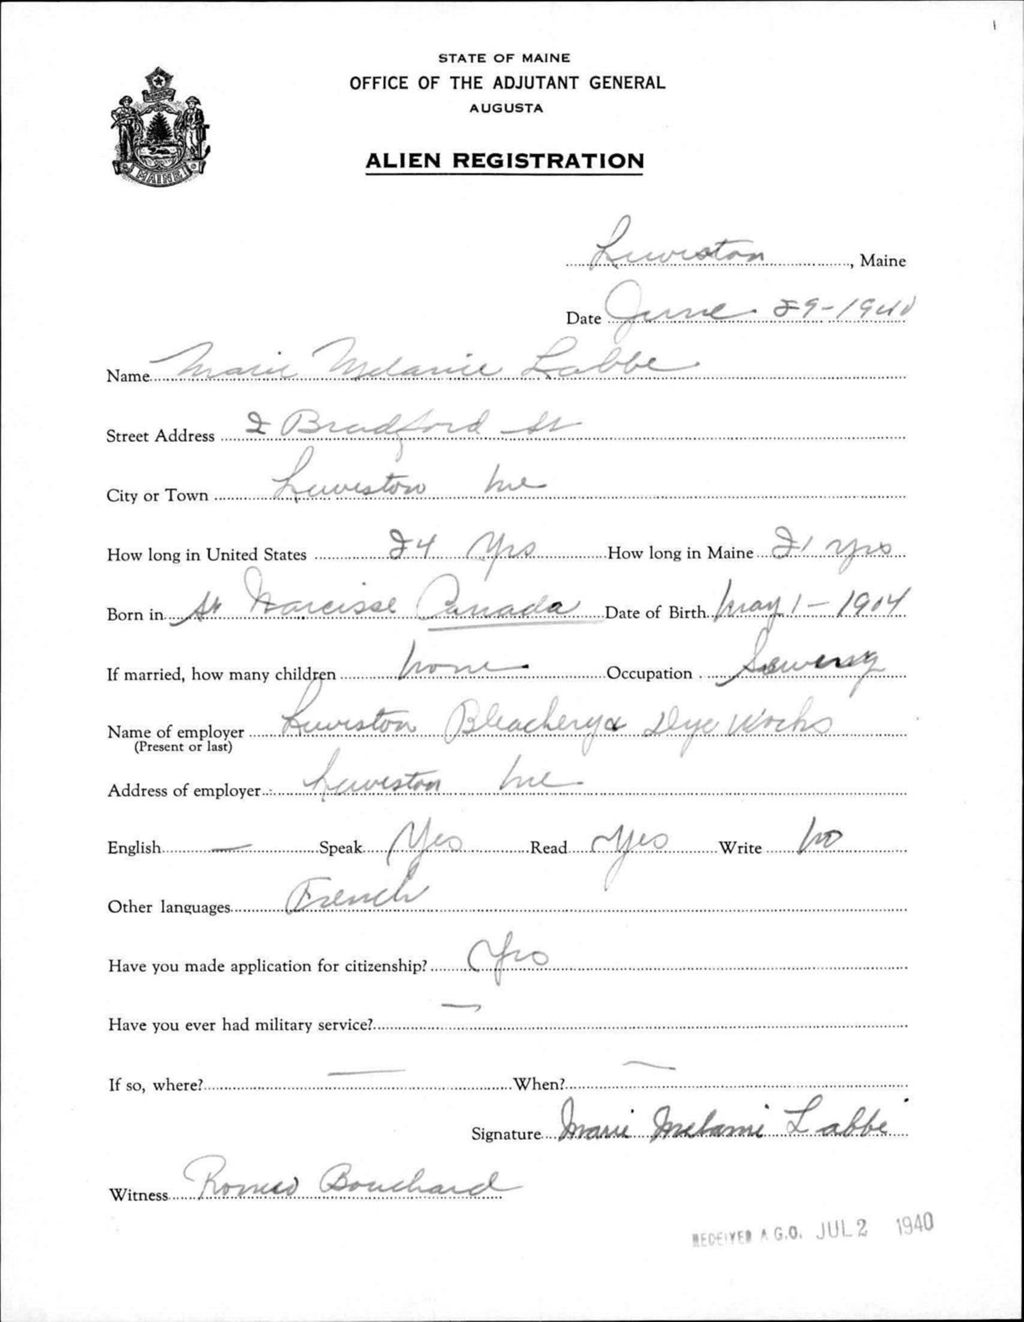 STATE OF MAINE
OFFICE OF THE ADJUTANT GENERAL
AUGUSTA
ALIEN REGISTRATION
MAINE
Lewiston, Maine
Date June 29-1940
Name Marie Melanie Labbe
Street Address 2 Bradford St
City or Town Lewiston Me
How long in United States 24 Yrs How long in Maine 21 yrs
Born in St Narcisse Canada Date of Birth May 1-1904
If married, how many children none Occupation Sewing
Name of employer Lewiston Bleachery & Dye Works
(Present or last)
Address of employer Lewiston Me
English — Speak Yes Read Yes Write No
Other languages French
Have you made application for citizenship? Yes
Have you ever had military service? —
If so, where? — When? —
Signature Marie Melanie Labbe
Witness Romeo Bouchard
RECEIVED A.G.O. JUL 2 1940